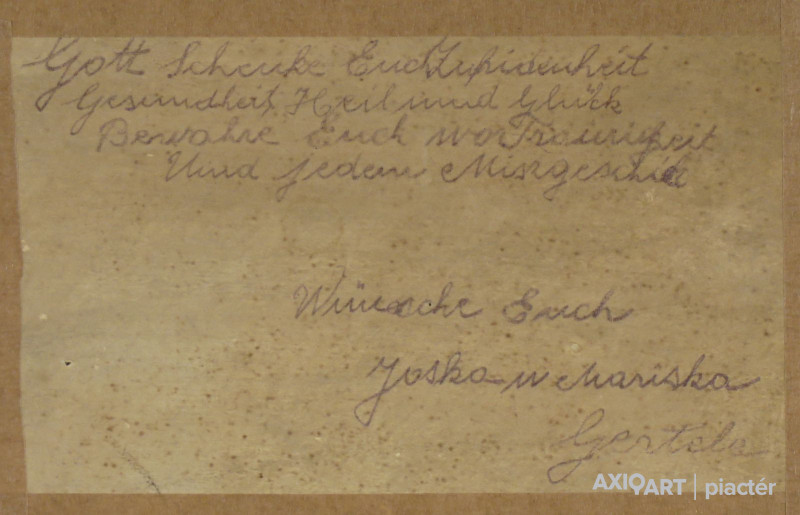 Gott Schenke Euch Zufriedenheit
Gesundheit, Heil und Glük
Bewahre Euch wor Traurigkeit
Und jedem Missgeschick
Wünsche Euch
Joska u Mariska
AXIOART | piactér